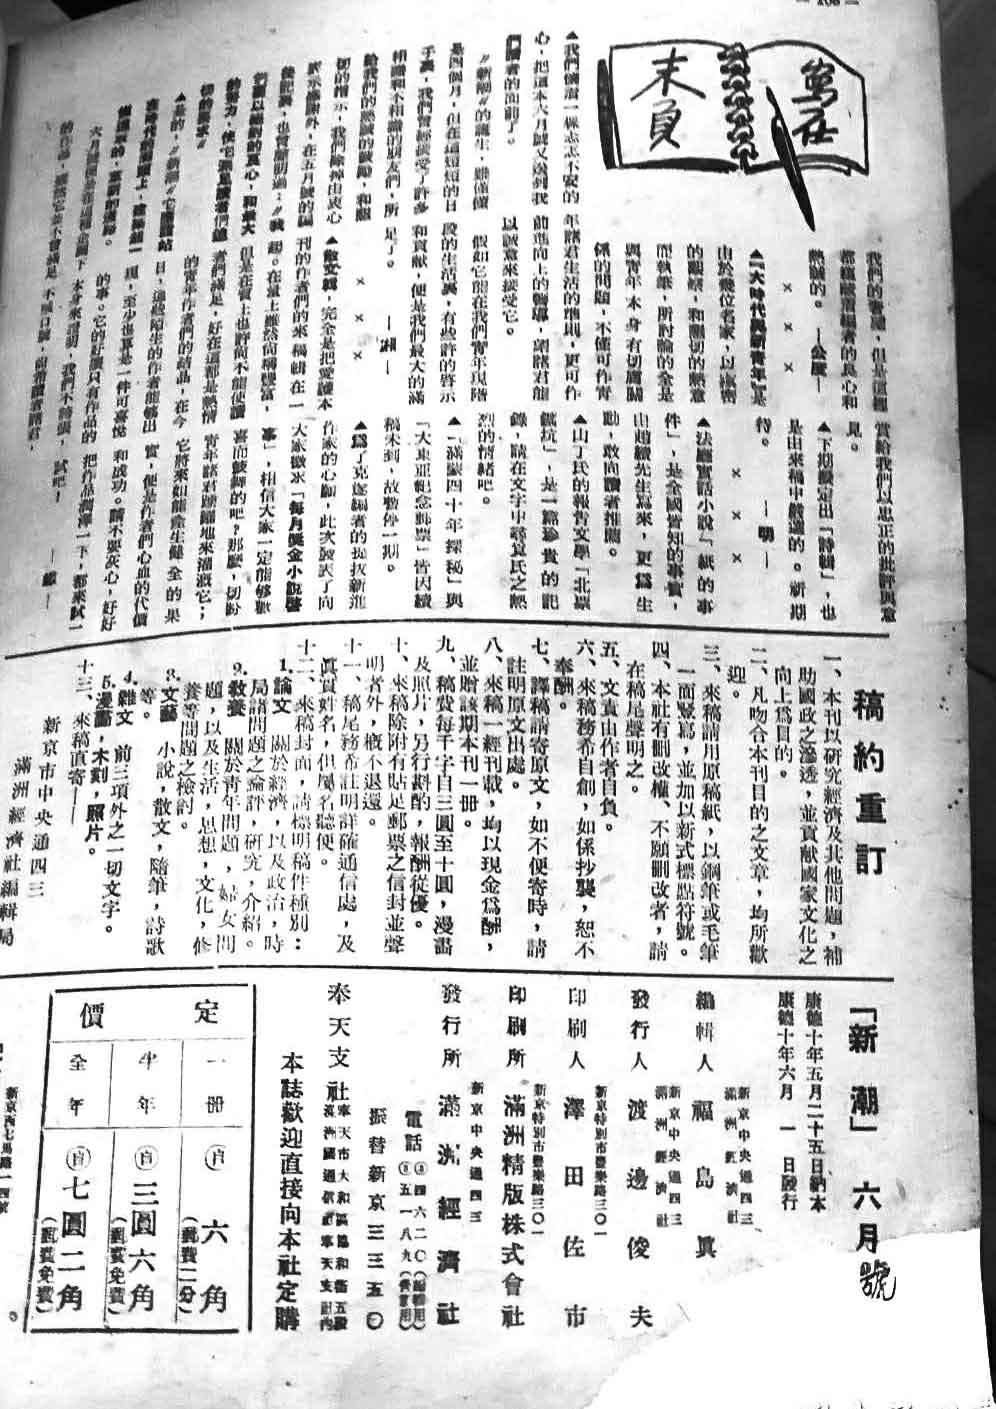 — 106 —
寫在
末頁
▲我們懷着一棵忐忑不安的
心,把這本六月號又送到我
們讀者的面前了。
『新潮』的誕生,雖僅僅
是四個月,但在這短短的日
子裏,我們曾經接受了許多
相識和不相識的朋友們,所
給我們的熱誠的鼓勵,和關
切的指示,我們除掉由衷心
表示感謝外,在五月號的編
後記裏,也曾鄭明過:『我
們願以絕對的良心,和最大
的努力,使它
切的要求』
▲是的,『新潮』它
在時代的
六月號
的作品,雖然它並不會滿足
我們的
都
熱誠的。 —公度—
× × ×
▲『大時代與新青年』是
由於幾位名家,以縝密
的觀察,和關切的熱意
而執筆,所討論的全是
與青年本身有切膚關
係的問題,不僅可作青
年諸君生活的準則,更可作
前進向上的輔導,望諸君能
以誠意來接受它。
假如它能在我們青年現階
段的生活裏,有些許的啓示
和貢獻,便是我們最大的滿
足了。 —湖—
× × ×
▲散文輯,完全是把愛護本
刊的作者們的來稿輯在一
起。在量上雖然尚稱豐富,
但是在質上也許尚不能使讀
者們滿足,好在這都是熱情
的青年作者們的結晶,在今
日,這般陌生的作者能够出
現,至少也算是一件可喜悅
的事。它的好壞只有作品的
本身來證明,我們不誇張,
不順口說,尚希讀者諸君,
賞給我們以忠正的批評與意
見。
▲下期擬定出『詩輯』,也
是由來稿中嚴選的。祈期
待。 —明—
× × ×
▲法廳實話小說『紙的事
件』,是全國皆知的事實,
由趙續先生寫來,更爲生
動,敢向讀者推薦。
▲山丁氏的報告文學『北票
礦坑』,是一篇珍貴的記
錄,請在文字中尋覓氏之熱
烈的情緒吧。
▲『滿蒙四十年探秘』與
『大東亞紀念郵票』皆因續
稿未到,故暫停一期。
▲爲了克遂編者的提拔新進
作家的心願,此次發表了向
大家徵求『每月獎金小說啓
事』,相信大家一定能够歡
喜而鼓舞的吧?那麼,切盼
青年諸君踴躍地來灌漑它;
它將來如能產生健全的果
實,便是作者們心血的代價
和成功。請不要灰心,好好
把作品潤澤一下,都來試一
試吧!
稿約重訂
一、本刊以研究經濟及其他問題,補
助國政之滲透,並貢献國家文化之
向上爲目的。
二、凡吻合本刊目的之文章,均所歡
迎。
三、來稿請用原稿紙,以鋼筆或毛筆
一面豎寫,並加以新式標點符號。
四、本社有删改權、不願删改者,請
在稿尾聲明之。
五、文責由作者自負。
六、來稿務希自創,如係抄襲,恕不
奉酬。
七、譯稿請寄原文,如不便寄時,請
註明原文出處。
八、來稿一經刊載,均以現金爲酬,
並贈該期本刊一册。
九、稿費每千字自三圓至十圓,漫畫
及照片,另行斟酌,報酬從優。
十、來稿除附有貼足郵票之信封並聲
明者外,概不退還。
十一、稿尾務希註明詳確通信處,及
眞實姓名,但屬名聽便。
十二、來稿封面,請標明稿件種別:
1.論文 關於經濟,以及政治,時
局諸問題之論評,研究,介紹。
2.教養 關於靑年問題,婦女問
題,以及生活,思想,文化,修
養等問題之檢討。
3.文藝 小說,散文,隨筆,詩歌
等。
4.雜文 前三項外之一切文字。
5.漫畫,木刻,照片。
十三、來稿直寄——
新京市中央通四三
滿洲經濟社編輯局
「新潮」六月號
康德十年五月二十五日納本
康德十年六月 一 日發行
新京中央通四三
滿洲經濟社
編輯人 福島眞
新京中央通四三
滿洲經濟社
發行人 渡邊俊夫
新京特別市豐樂路三〇一
印刷人 澤田佐市
新京特別市豐樂路三〇一
印刷所 滿洲精版株式會社
新京中央通四三
發行所 滿洲經濟社
電話
振替新京三三五〇
奉天支社
奉天市大和區協和街五段
滿洲國通信社奉天支社內
本誌歡迎直接向本社定購
定價
一册 六角
(郵費二分)
半年 三圓六角
(郵費免費)
全年 七圓二角
(郵費免費)
新京西七馬路一四號